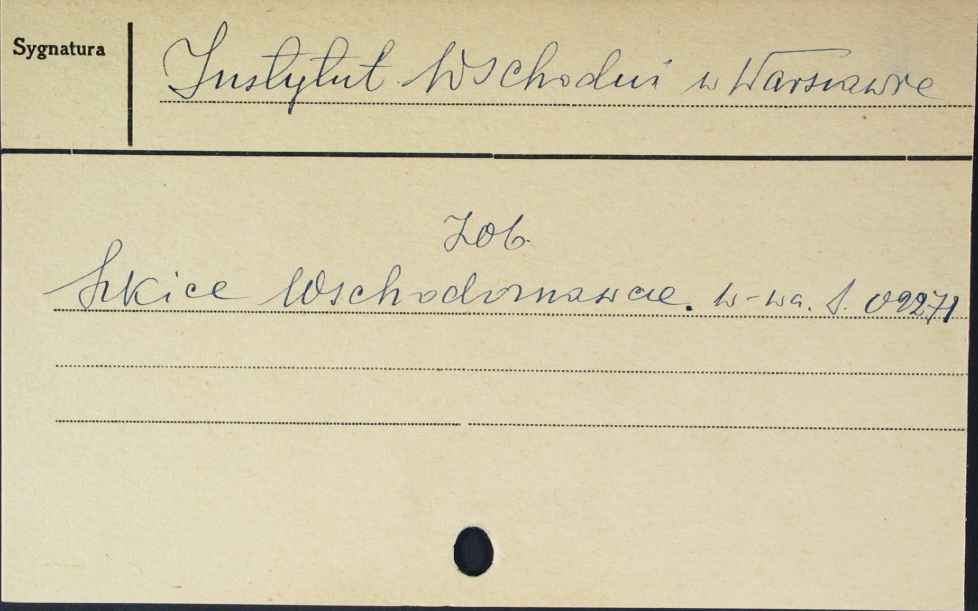 Sygnatura
Instytut Wschodni w Warszawie
Zob.
Szkice Wschodoznawcze. W-wa. S. 09271